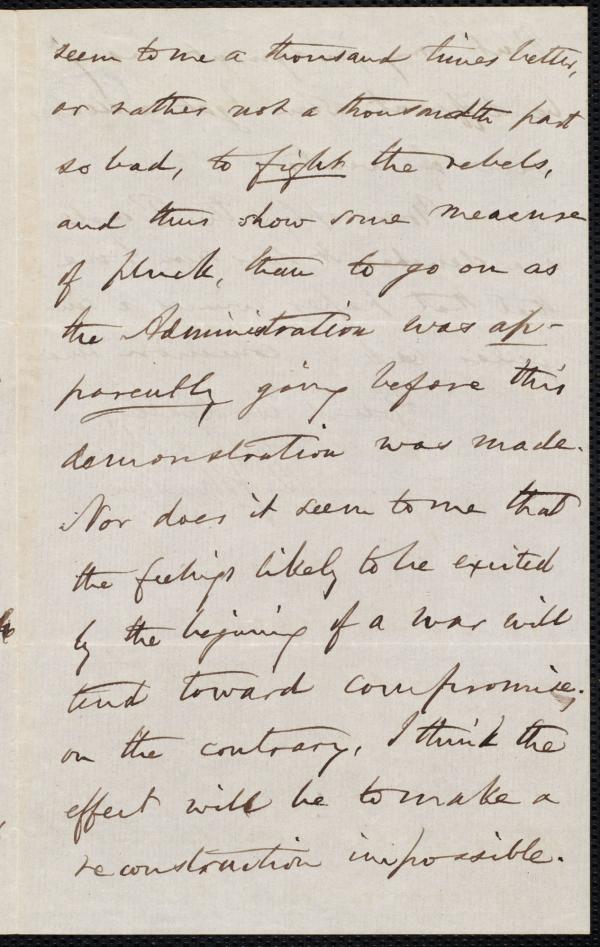 seem to me a thousand times better,
or rather not a thousandth part
so bad, to fight the rebels,
and thus show some measure
of pluck, than to go on as
the Administration was ap-
parently going before this
demonstration was made.
Nor does it seem to me that
the feelings likely to be excited
by the begining of a war will
tend toward compromise;
on the contrary, I think the
effect will be to make a
reconstruction impossible.